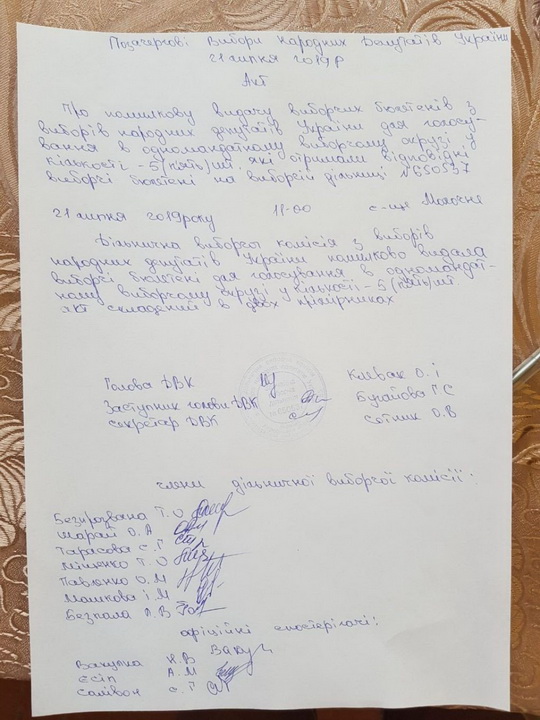 Позачергові Вибори Народних Депутатів України
21 липня 2019 р
Акт
Про помилкову видачу виборчих бюлетенів з
виборів народних депутатів України для голосу-
вання в одномандатному виборчому окрузі у
кількості - 5 /п'ять/ шт. які отримали відповідні
виборчі бюлетені на виборчій дільниці №650537
21 липня 2019 року 11-00 с-ще Молочне
Дільнична виборча комісія з виборів
народних депутатів України помилково видала
виборчі бюлетені для голосування в одномандат-
ному виборчому окрузі у кількості - 5 (п'ять) шт
акт складений в двох примірниках
Голова ДВК Клевак О. І
Заступник голови ДВК Бугайова Г С
секретар ДВК Сотник О.В
члени дільничної виборчої комісії:
Т. О
Шарай О. А
Тарасова С. Г
Міщенко Т. О
Павленко О. М
Машкова І. М
Безпала Л. В
офіційні спостерігачі:
Вакулка Н.В
Єсіп А. М
С. Г